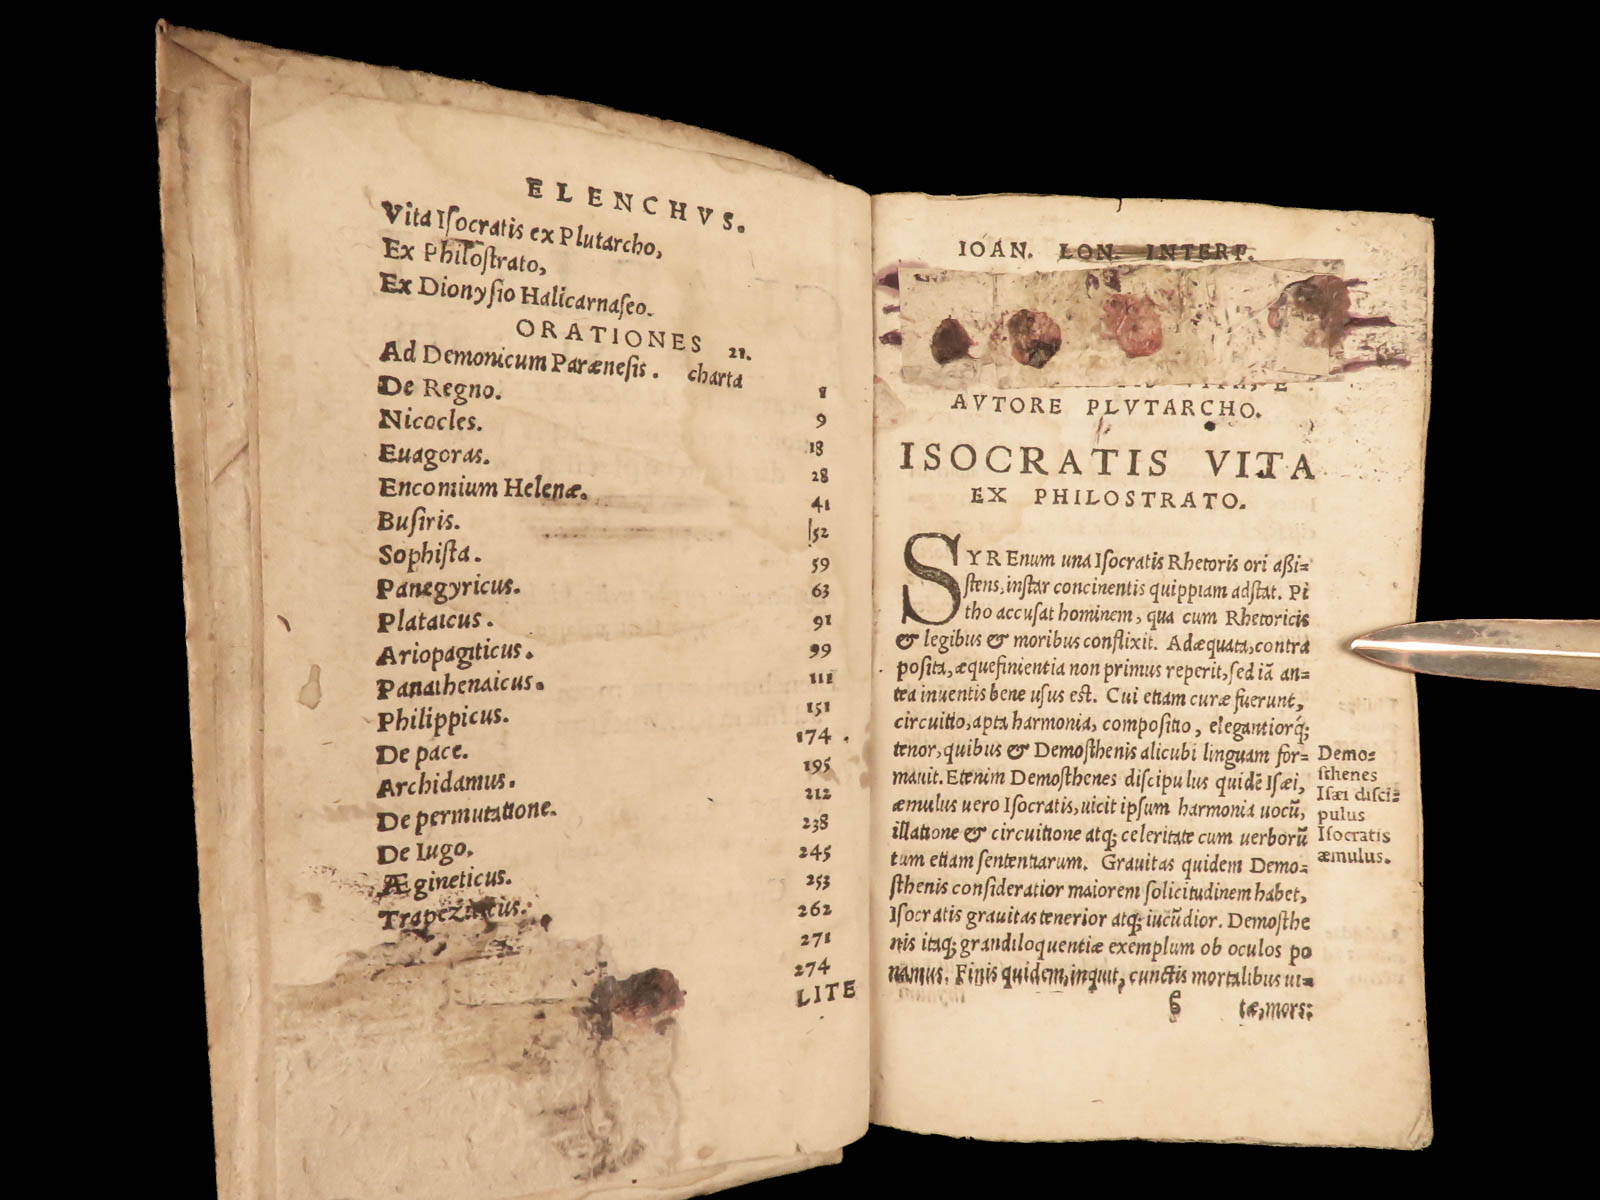 ELENCHVS.
Vita Iſocratis ex Plutarcho,
Ex Philoſtrato,
Ex Dionyſio Halicarnaſeo.
ORATIONES 21.
Ad Demonicum Parænesis. charta
De Regno. 1
Nicocles. 9
Euagoras. 18
Encomium Helenæ. 28
Buſiris. 41
Sophiſta. 52
Panegyricus. 59
Plataicus. 63
Ariopagiticus. 91
Panathenaicus. 99
Philippicus. 111
De pace. 151
Archidamus. 174
De permutatione. 195
De Iugo. 212
Ægineticus. 238
Trapeziticus. 245
253
262
271
274
LITE
IOAN. LON. INTERP.
AVTORE PLVTARCHO.
ISOCRATIS VITA
EX PHILOSTRATO.
SYREnum una Iſocratis Rhetoris ori aßi=
ſtens, inſtar concinentis quippiam adſtat. Pi
tho accuſat hominem, qua cum Rhetoricis
& legibus & moribus conflixit. Adæquata, contra
poſita, æquefinientia non primus reperit, ſed iã an=
tea inuentis bene uſus eſt. Cui etiam curæ fuerunt,
circuitio, apta harmonia, compoſitio, elegantiorq́;
tenor, quibus & Demoſthenis alicubi linguam for=
mauit. Etenim Demoſthenes diſcipulus quidẽ Iſæi,
æmulus uero Iſocratis, uicit ipſum harmonia uocũ,
illatione & circuitione atq; celeritate cum uerborũ
tum etiam ſententiarum. Grauitas quidem Demo=
ſthenis conſideratior maiorem ſolicitudinem habet,
Iſocratis grauitas tenerior atq; iucũdior. Demoſthe
nis itaq; grandiloquentiæ exemplum ob oculos po
namus. Finis quidem, inquit, cunctis mortalibus ui=
6 tæ, mors:
Demo=
ſthenes
Iſæi diſci=
pulus
Iſocratis
æmulus.